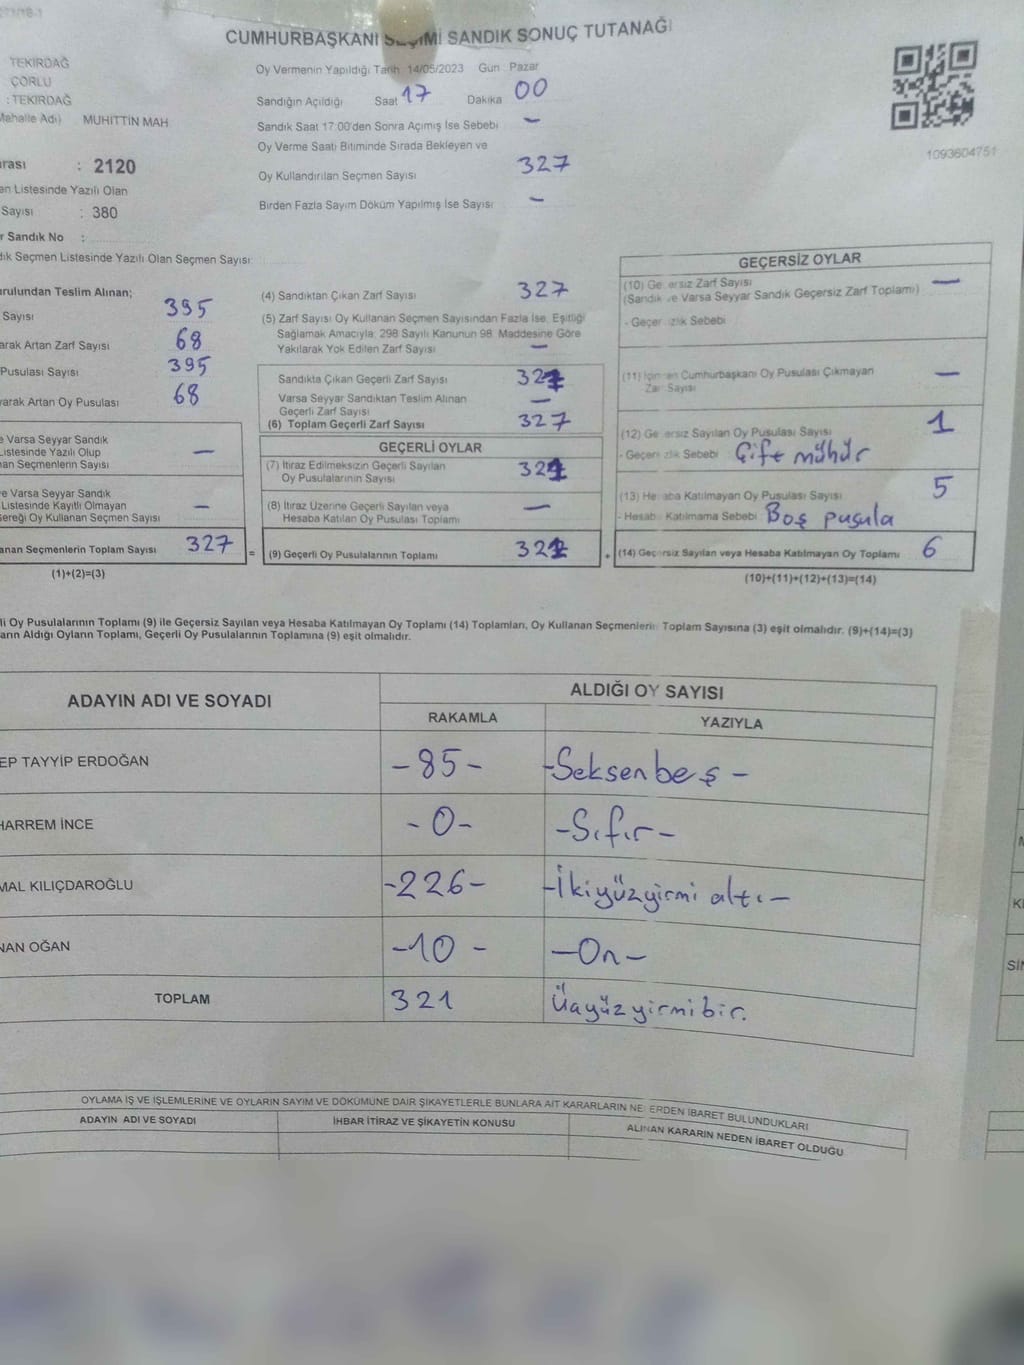 CUMHURBAŞKANI SEÇİMİ SANDIK SONUÇ TUTANAĞI
TEKİRDAĞ
ÇORLU
: TEKİRDAĞ
Mahalle Adı) MUHİTTİN MAH
Oy Vermenin Yapıldığı Tarih 14/05/2023 Gün Pazar
Sandığın Açıldığı Saat 17 Dakika 00
Sandık Saat 17:00'den Sonra Açılmış İse Sebebi —
Oy Verme Saati Bitiminde Sırada Bekleyen ve
Oy Kullandırılan Seçmen Sayısı 327
Birden Fazla Sayım Döküm Yapılmış İse Sayısı —
1093604751
ırası : 2120
en Listesinde Yazılı Olan
Sayısı : 380
r Sandık No :
dık Seçmen Listesinde Yazılı Olan Seçmen Sayısı:
urulundan Teslim Alınan;
Sayısı 395
arak Artan Zarf Sayısı 68
Pusulası Sayısı 395
yarak Artan Oy Pusulası 68
e Varsa Seyyar Sandık
Listesinde Yazılı Olup
nan Seçmenlerin Sayısı —
ve Varsa Seyyar Sandık
Listesinde Kayıtlı Olmayan
ereği Oy Kullanan Seçmen Sayısı —
anan Seçmenlerin Toplam Sayısı 327 =
(1)+(2)=(3)
(4) Sandıktan Çıkan Zarf Sayısı 327
(5) Zarf Sayısı Oy Kullanan Seçmen Sayısından Fazla İse, Eşitliği
Sağlamak Amacıyla; 298 Sayılı Kanunun 98. Maddesine Göre
Yakılarak Yok Edilen Zarf Sayısı —
Sandıkta Çıkan Geçerli Zarf Sayısı 327
Varsa Seyyar Sandıktan Teslim Alınan
Geçerli Zarf Sayısı —
(6) Toplam Geçerli Zarf Sayısı 327
GEÇERLİ OYLAR
(7) İtiraz Edilmeksizin Geçerli Sayılan
Oy Pusulalarının Sayısı 321
(8) İtiraz Üzerine Geçerli Sayılan veya
Hesaba Katılan Oy Pusulası Toplamı —
(9) Geçerli Oy Pusulalarının Toplamı 321 +
GEÇERSİZ OYLAR
(10) Geçersiz Zarf Sayısı
(Sandık ve Varsa Seyyar Sandık Geçersiz Zarf Toplamı) —
- Geçersizlik Sebebi
(11) İçinden Cumhurbaşkanı Oy Pusulası Çıkmayan
Zarf Sayısı —
(12) Geçersiz Sayılan Oy Pusulası Sayısı 1
- Geçersizlik Sebebi Çift mühür
(13) Hesaba Katılmayan Oy Pusulası Sayısı 5
- Hesaba Katılmama Sebebi Boş pusula
(14) Geçersiz Sayılan veya Hesaba Katılmayan Oy Toplamı 6
(10)+(11)+(12)+(13)=(14)
li Oy Pusulalarının Toplamı (9) ile Geçersiz Sayılan veya Hesaba Katılmayan Oy Toplamı (14) Toplamları, Oy Kullanan Seçmenlerin Toplam Sayısına (3) eşit olmalıdır. (9)+(14)=(3)
arın Aldığı Oyların Toplamı, Geçerli Oy Pusulalarının Toplamına (9) eşit olmalıdır.
ADAYIN ADI VE SOYADI ALDIĞI OY SAYISI
RAKAMLA YAZIYLA
EP TAYYİP ERDOĞAN -85- -Seksenbeş-
HARREM İNCE -0- -Sıfır-
MAL KILIÇDAROĞLU -226- -İkiyüzyirmi altı-
NAN OĞAN -10- -On-
TOPLAM 321 Üçyüzyirmibir.
OYLAMA İŞ VE İŞLEMLERİNE VE OYLARIN SAYIM VE DÖKÜMÜNE DAİR ŞİKAYETLERLE BUNLARA AİT KARARLARIN NELERDEN İBARET BULUNDUKLARI
ADAYIN ADI VE SOYADI İHBAR İTİRAZ VE ŞİKAYETİN KONUSU ALINAN KARARIN NEDEN İBARET OLDUĞU